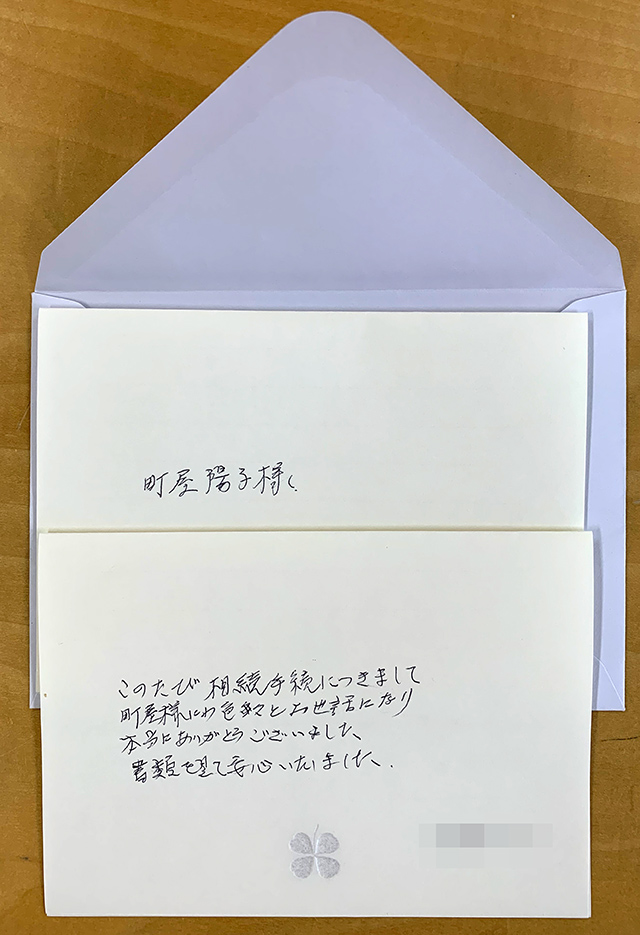 町屋陽子様へ
このたび相続手続につきまして
町屋様には色々とお世話になり
本当にありがとうございました、
書類を見て安心いたしました、